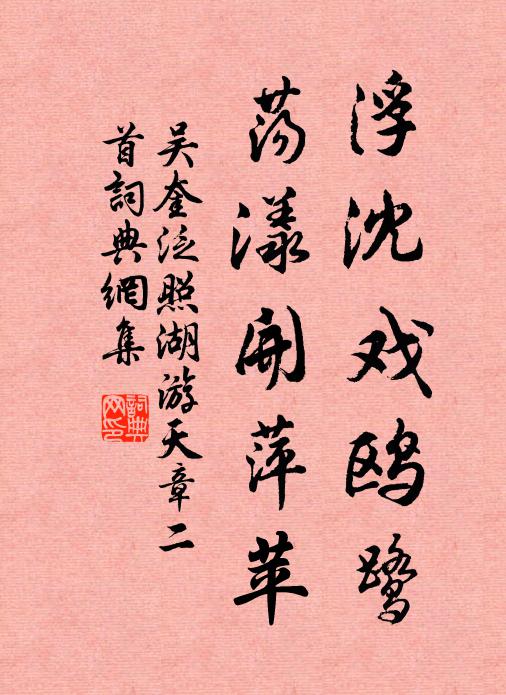 浮沈戏鸥鹭
荡漾開萍苹
吴奎泛照湖游天章二
首詞典網集
詞典
网印